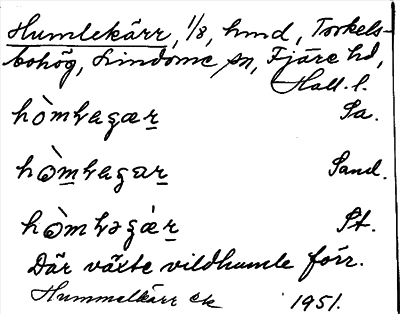 Humlekärr, 1/8, hmd, Torkels-
bohög, Lindome sn, Fjäre hd,
Hall. l.
hòmꞕagær Sa.
hòmꞕagar Sand.
hòmꞕəgàr St.
Där växte vildhumle förr.
Hummelkärr ek 1951.